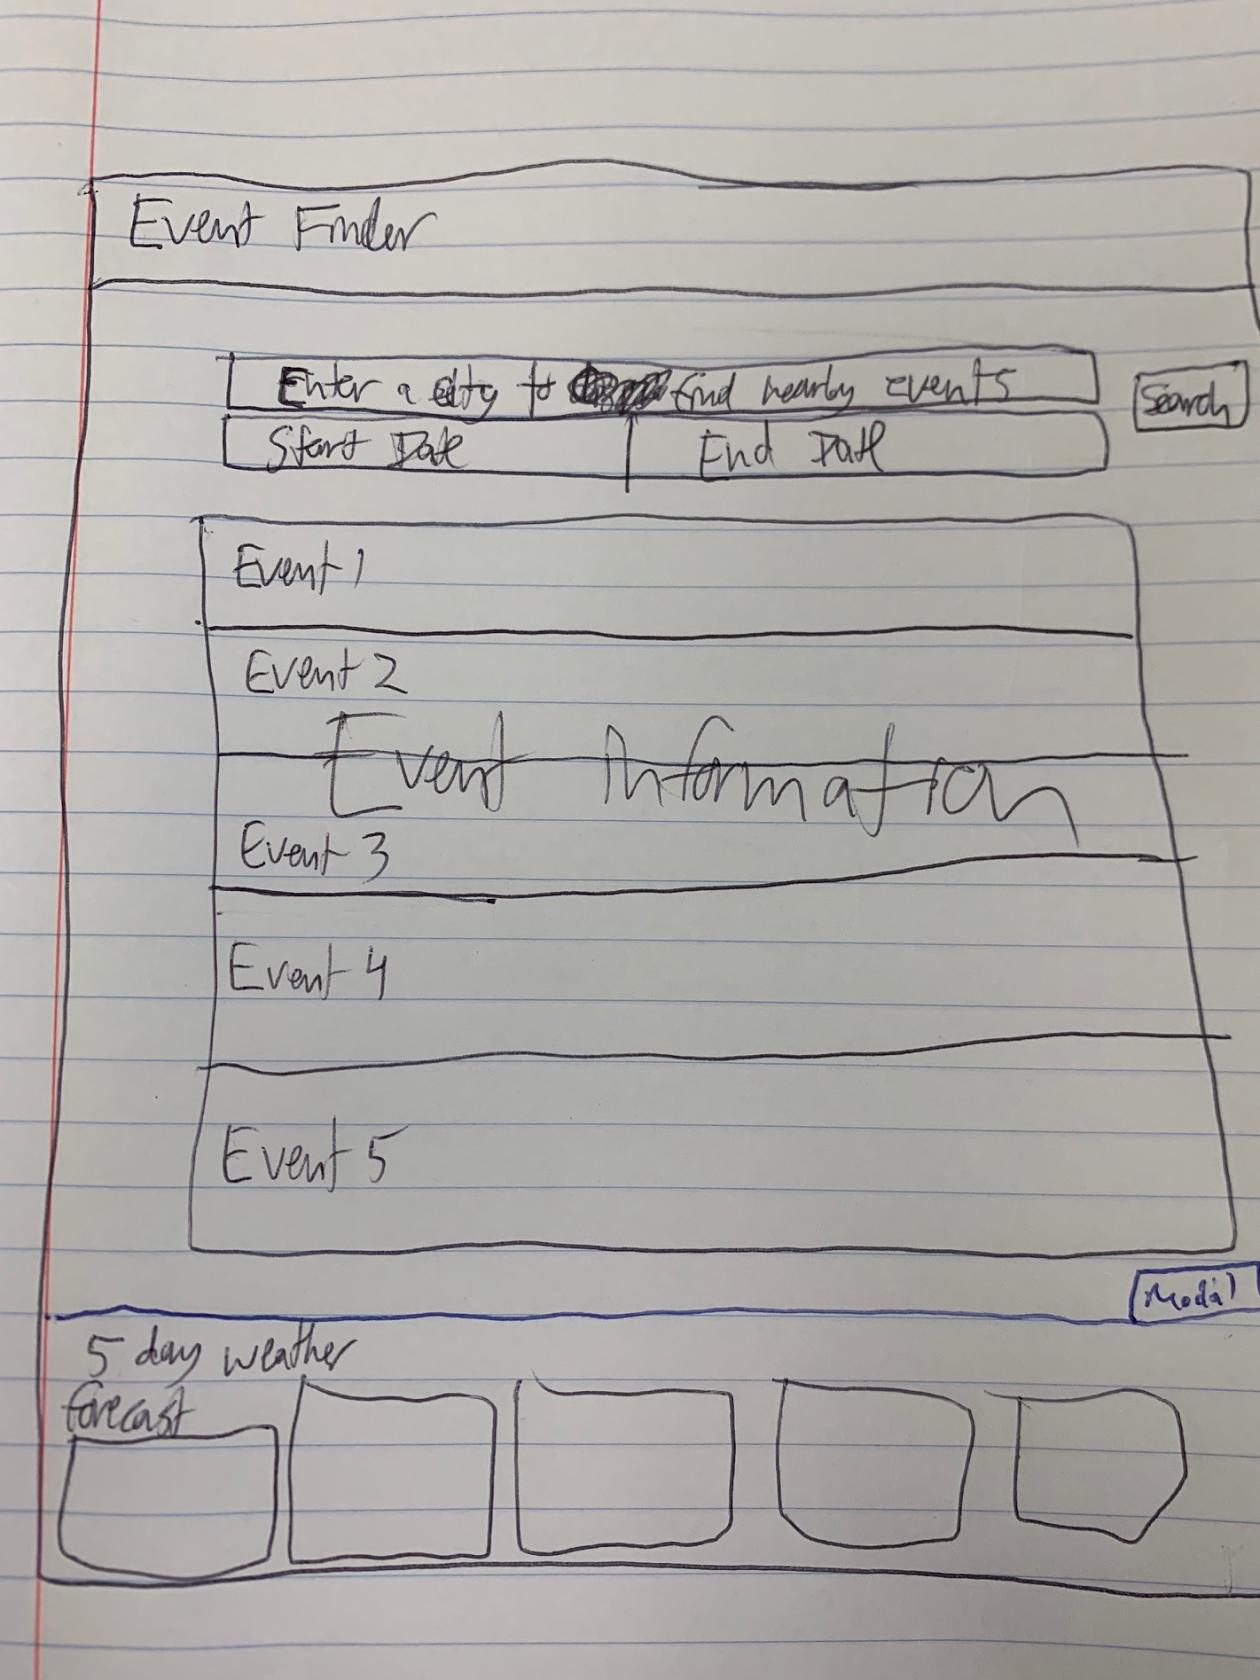 Event Finder
Enter a city to find nearby events
Search
Start Date End Date
Event 1
Event 2
Event Information
Event 3
Event 4
Event 5
Modal
5 day weather
forecast